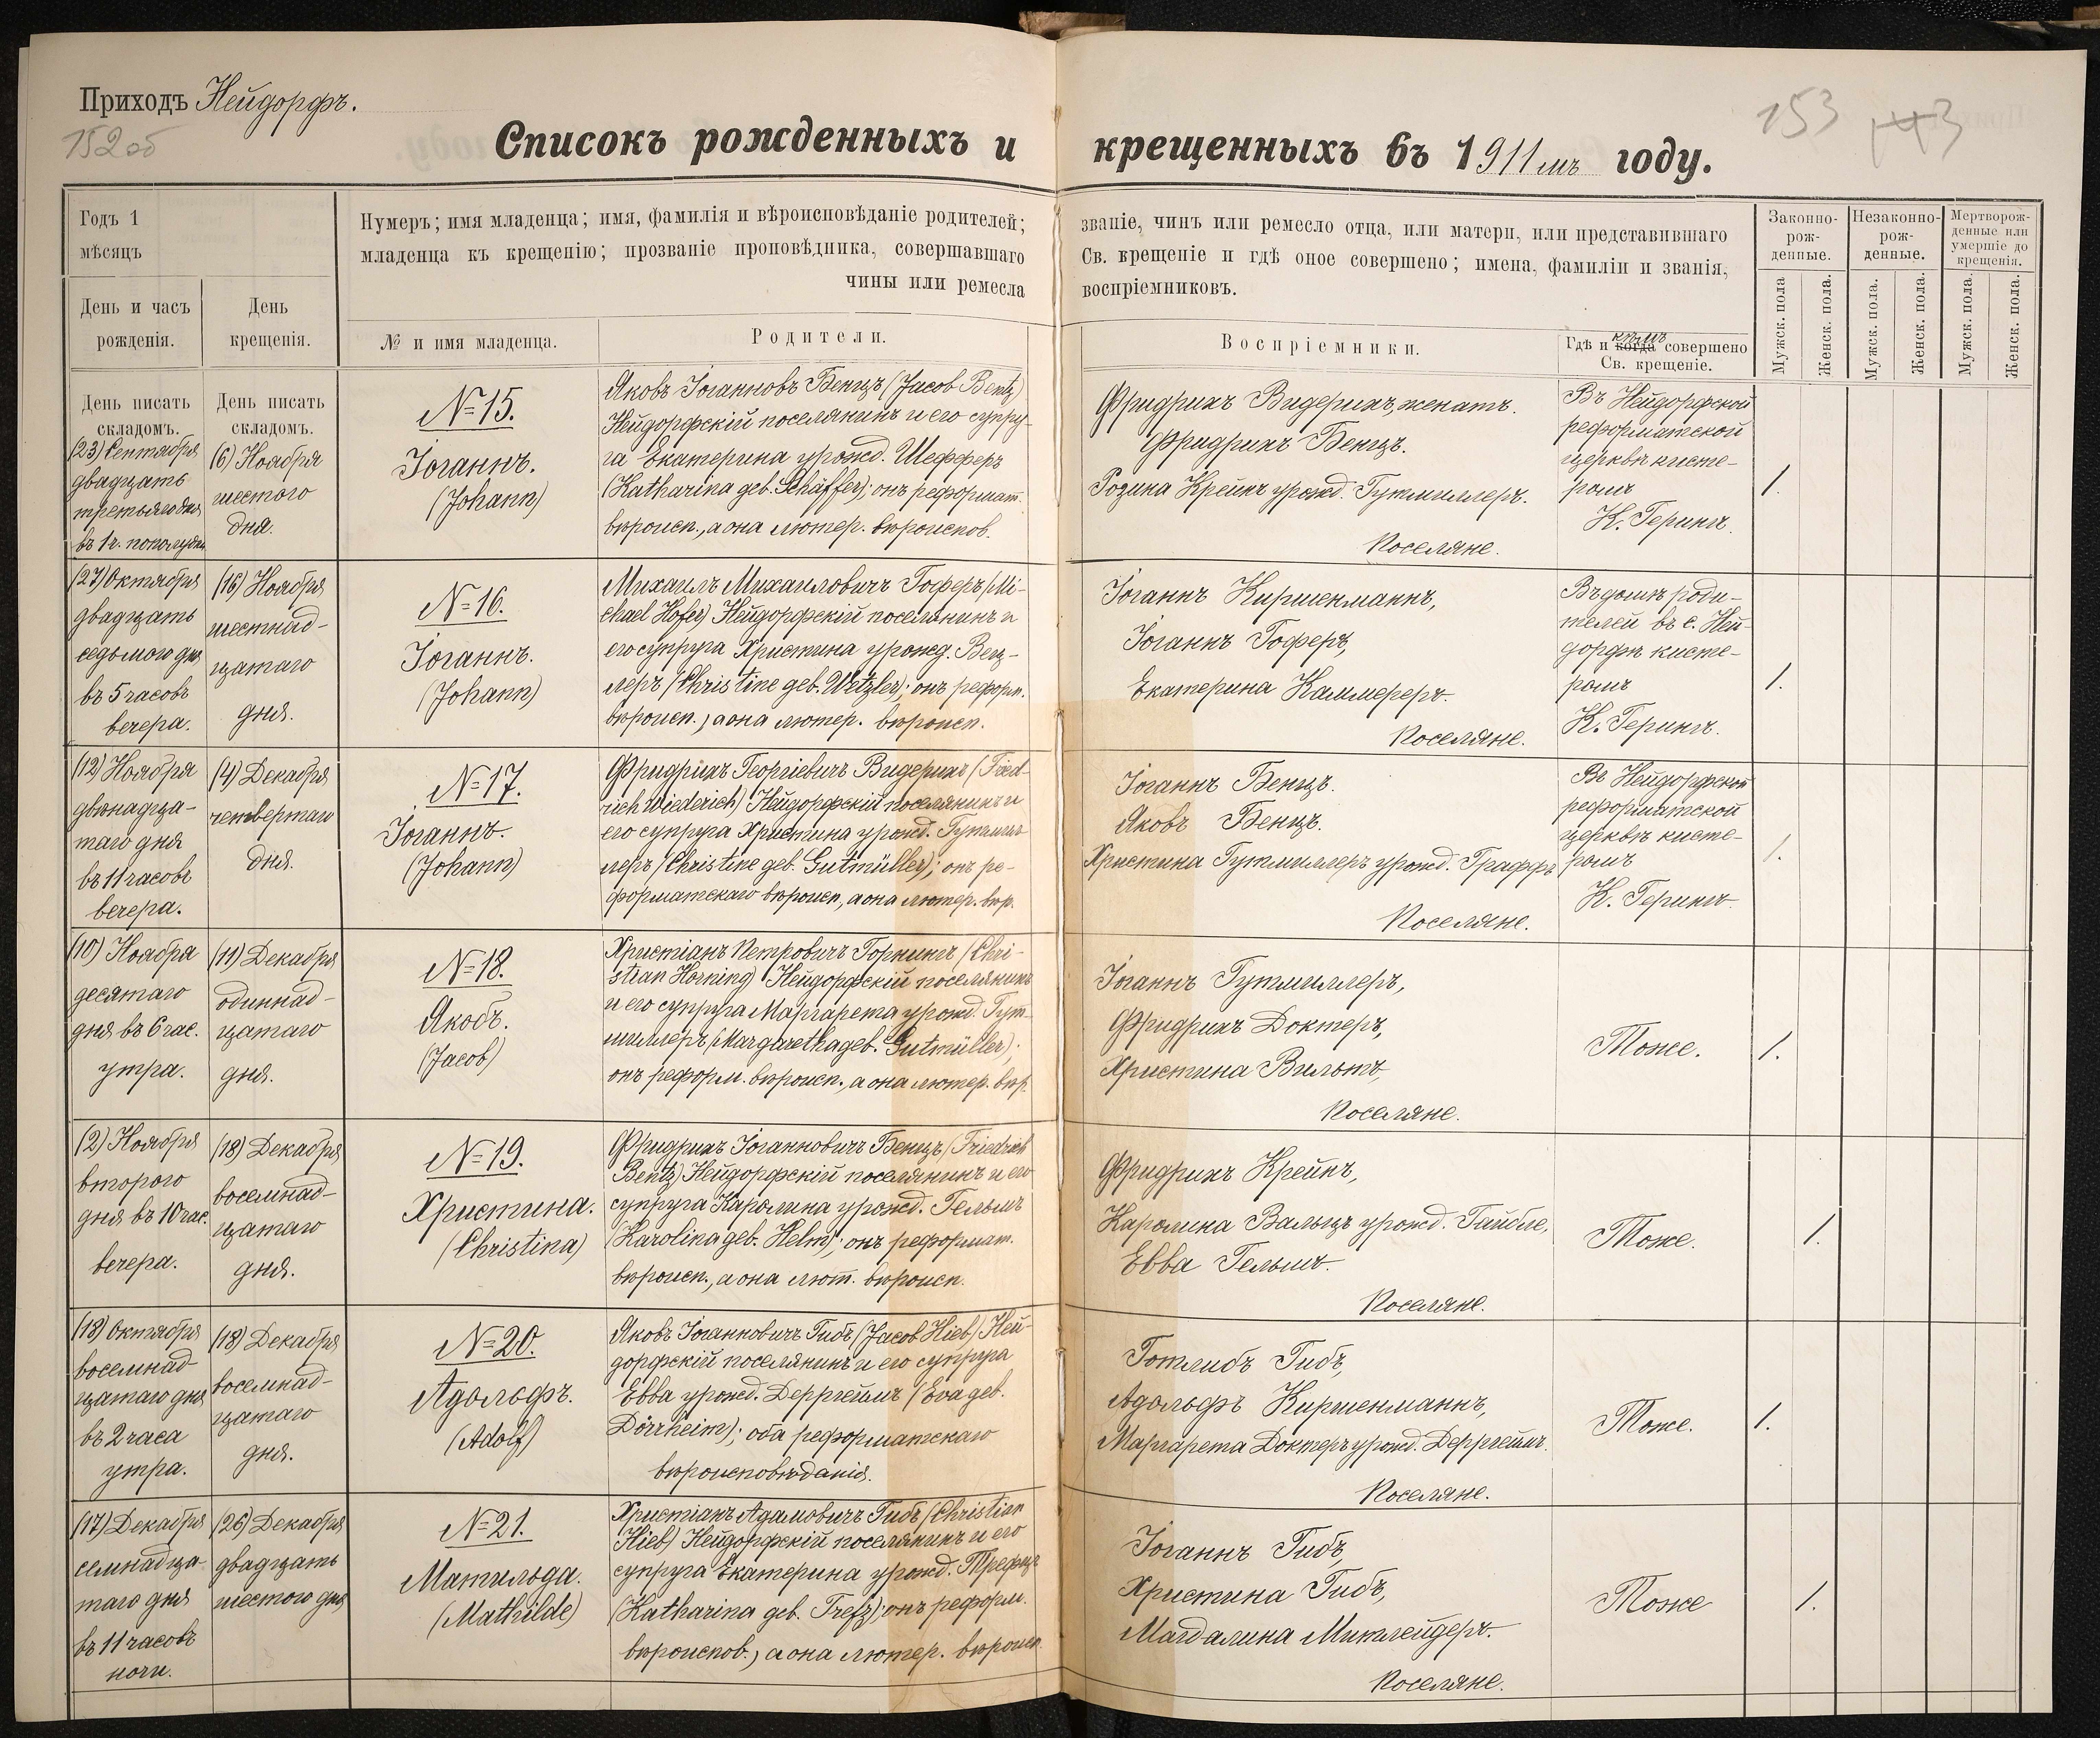 Приходъ Нейдорфъ.
152об
153
143
Списокъ рожденныхъ и крещенныхъ въ 1911мъ году.
Годъ 1
мѣсяцъ
День и часъ
рожденія.
День
крещенія.
Нумеръ; имя младенца; имя, фамилія и вѣроисповѣданіе родителей;
младенца къ крещенію; прозваніе проповѣдника, совершавшаго
чины или ремесла
№ и имя младенца.
Родители.
званіе, чинъ или ремесло отца, или матери, или представившаго
Св. крещеніе и гдѣ оное совершено; имена, фамиліи и званія,
воспріемниковъ.
Воспріемники.
кѣмъ
Гдѣ и когда совершено
Св. крещеніе.
Законно-
рож-
денные.
Незаконно-
рож-
денные.
Мертворож-
денные или
умершіе до
крещенія.
Мужск. пола
Женск. пола.
Мужск. пола.
Женск. пола.
Мужск. пола.
Женск. пола.
День писать
складомъ.
(23) Сентября
двадцать
третьяго дня
въ 1 ч. пополудни
День писать
складомъ.
(6) Ноября
шестого
дня.
№ 15.
Іоганнъ.
(Johann)
Яковъ Іоганновъ Бенцъ (Jacob Bentz)
Нейдорфскій поселянинъ и его супру-
га Екатерина урожд. Шефферъ
(Katharina geb. Schäffer); онъ реформат.
вѣроисп., а она лютер. вѣроиспов.
Фридрихъ Видерихъ, женатъ.
Фридрихъ Бенцъ.
Розина Крейнъ урожд. Гутмиллеръ.
Поселяне.
Въ Нейдорфской
реформатской
церквѣ кисте-
ромъ
К. Герингъ.
1.
(27) Октября
двадцать
седьмого дня
въ 5 часовъ
вечера.
(16) Ноября
шестнад-
цатаго
дня.
№ 16.
Іоганнъ.
(Johann)
Михаилъ Михаиловичъ Гоферъ (Mi-
chael Hofer) Нейдорфскій поселянинъ и
его супруга Христина урожд. Вец-
леръ (Christine geb. Wetzler); онъ реформ.
вѣроисп., а она лютер. вѣроисп.
Іоганнъ Киршенманнъ,
Іоганнъ Гоферъ,
Екатерина Каммереръ.
Поселяне.
Въ домѣ роди-
телей въ с. Ней-
дорфѣ кисте-
ромъ
К. Герингъ.
1.
(12) Ноября
двѣнадца-
таго дня
въ 11 часовъ
вечера.
(4) Декабря
четвертаго
дня.
№ 17.
Іоганнъ.
(Johann)
Фридрихъ Георгіевичъ Видерихъ (Fried-
rich Wiederich) Нейдорфскій поселянинъ и
его супруга Христина урожд. Гутмил-
леръ (Christine geb. Gutmüller); онъ ре-
форматскаго вѣроисп., а она лютер. вѣр.
Іоганнъ Бенцъ.
Яковъ Бенцъ.
Христина Гутмиллеръ урожд. Граффъ
Поселяне.
Въ Нейдорфской
реформатской
церквѣ кисте-
ромъ
К. Герингъ
1.
(10) Ноября
десятаго
дня въ 6 час.
утра.
(11) Декабря
одиннад-
цатаго
дня.
№ 18.
Якобъ.
(Jacob)
Христіанъ Петровичъ Горнингъ (Chri-
stian Horning) Нейдорфскій поселянинъ
и его супруга Маргарета урожд. Гут-
миллеръ (Margaretha geb. Gutmüller);
онъ реформ. вѣроисп., а она лютер. вѣр.
Іоганнъ Гутмиллеръ,
Фридрихъ Доктеръ,
Христина Вильтъ,
Поселяне.
Тоже.
1.
(2) Ноября
второго
дня въ 10 час.
вечера.
(18) Декабря
восемнад-
цатаго
дня.
№ 19.
Христина.
(Christina)
Фридрихъ Іоганновичъ Бенцъ (Friedrich
Bentz) Нейдорфскій поселянинъ и его
супруга Каролина урожд. Гельмъ
(Karolina geb. Helm); онъ реформат.
вѣроисп., а она лют. вѣроисп.
Фридрихъ Крейнъ,
Каролина Вальцъ урожд. Гайбле,
Евва Гельмъ.
Поселяне.
Тоже.
1.
(18) Октября
восемнад-
цатаго дня
въ 2 часа
утра.
(18) Декабря
восемнад-
цатаго
дня.
№ 20.
Адольфъ.
(Adolf)
Яковъ Іоганновичъ Гибъ (Jacob Hieb) Ней-
дорфскій поселянинъ и его супруга
Евва урожд. Дерргеймъ (Eva geb.
Dörrheim); оба реформатскаго
вѣроисповѣданія.
Готлибъ Гибъ,
Адольфъ Киршенманнъ,
Маргарета Доктеръ урожд. Дерргеймъ.
Поселяне.
Тоже.
1.
(17) Декабря
семнадца-
таго дня
въ 11 часовъ
ночи.
(26) Декабря
двадцать
шестого дня
№ 21.
Матильда.
(Mathilde)
Христіанъ Адамовичъ Гибъ (Christian
Hieb) Нейдорфскій поселянинъ и его
супруга Екатерина урожд. Трефцъ
(Katharina geb. Trefz); онъ реформ.
вѣроиспов., а она лютер. вѣроисп.
Іоганнъ Гибъ,
Христина Гибъ,
Магдалина Митлейдеръ.
Поселяне.
Тоже
1.